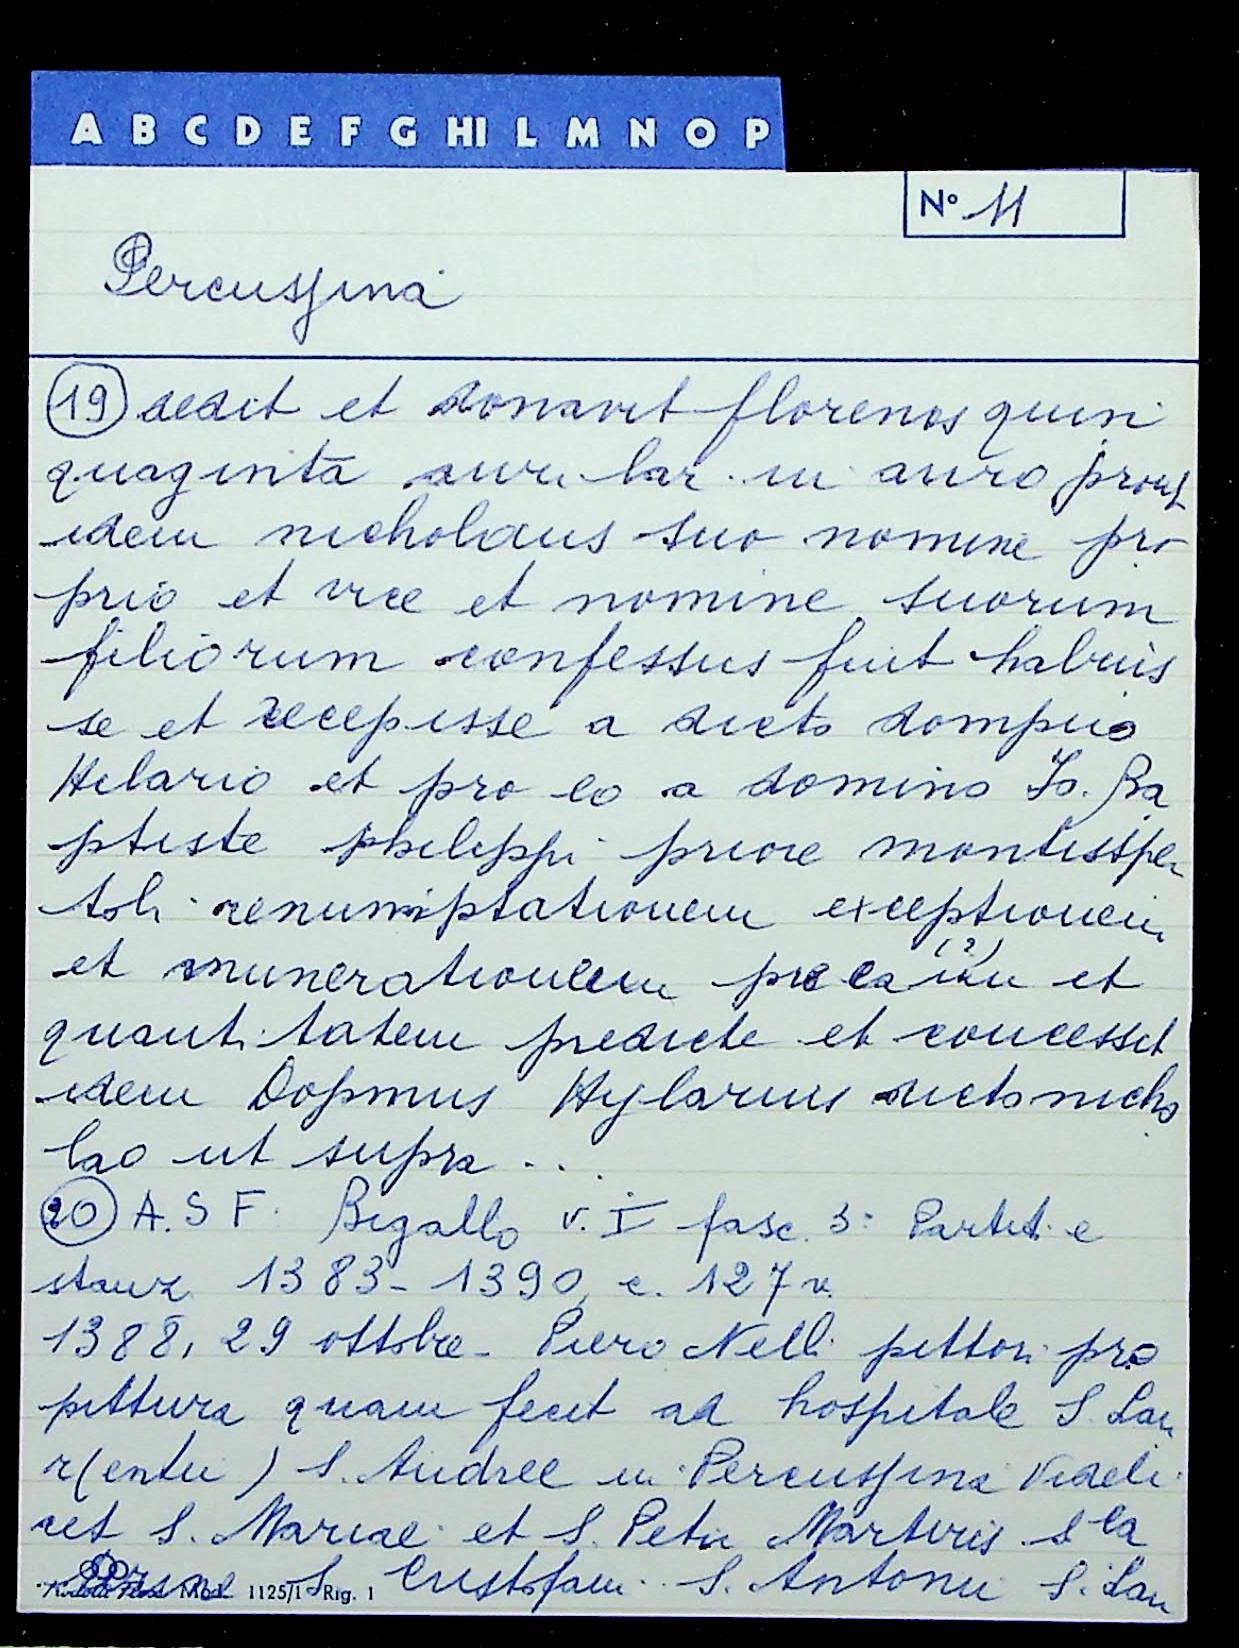 A B C D E F G HI L M N O P
Nº 11
Percussina
19 dedit et donavit florenos quin
quaginta auri lar. in auro prout
idem nicholaus suo nomine pro
prio et vice et nomine suorum
filiorum confessus fuit habuis
se et recepisse a dicto dompno
Hilario et pro eo a domino Jo. Ba
ptiste philippi priore montisspe
toli renumptationem exceptionem
et munerationem (?) et
quantitatem predicte et concessit
idem Dopmus Hylarius dicto nicho
lao ut supra ...
20 A. S F. Bigallo v. I fasc. 3: Partiti e
stanz. 1383-1390, c. 127 v.
1388, 29 ottobre - Piero Nelli pittori pro
pittura quam fecit ad hospitale S. Lau
r(entii) S. Andree in Percussina Videli
cet S. Mariae et S. Petri Martiris
Mod. 1125/1 Rig. 1 S. Cristofani S. Antonii S. Lau